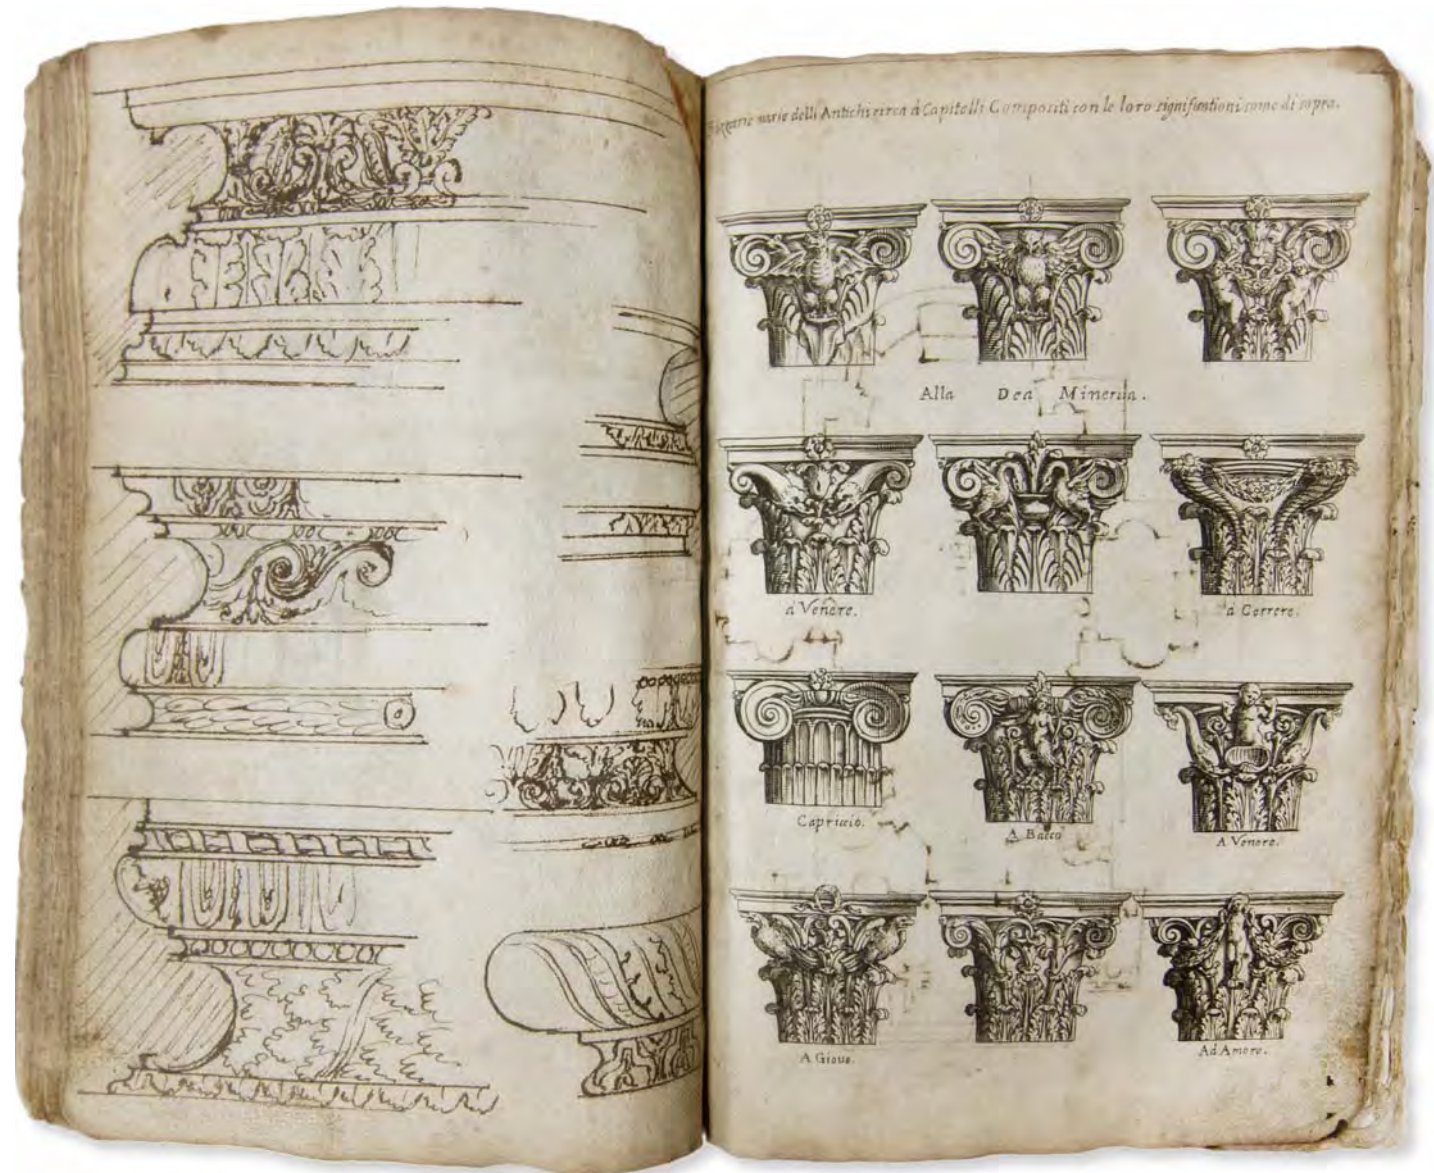 varie delli Antichi circa à Capitelli Compositi con le loro significationi come di sopra.
Alla Dea Minerva.
à Venere.
à Cerrere.
Capriccio.
A Bacco
A Venere.
A Giove.
Ad Amore.